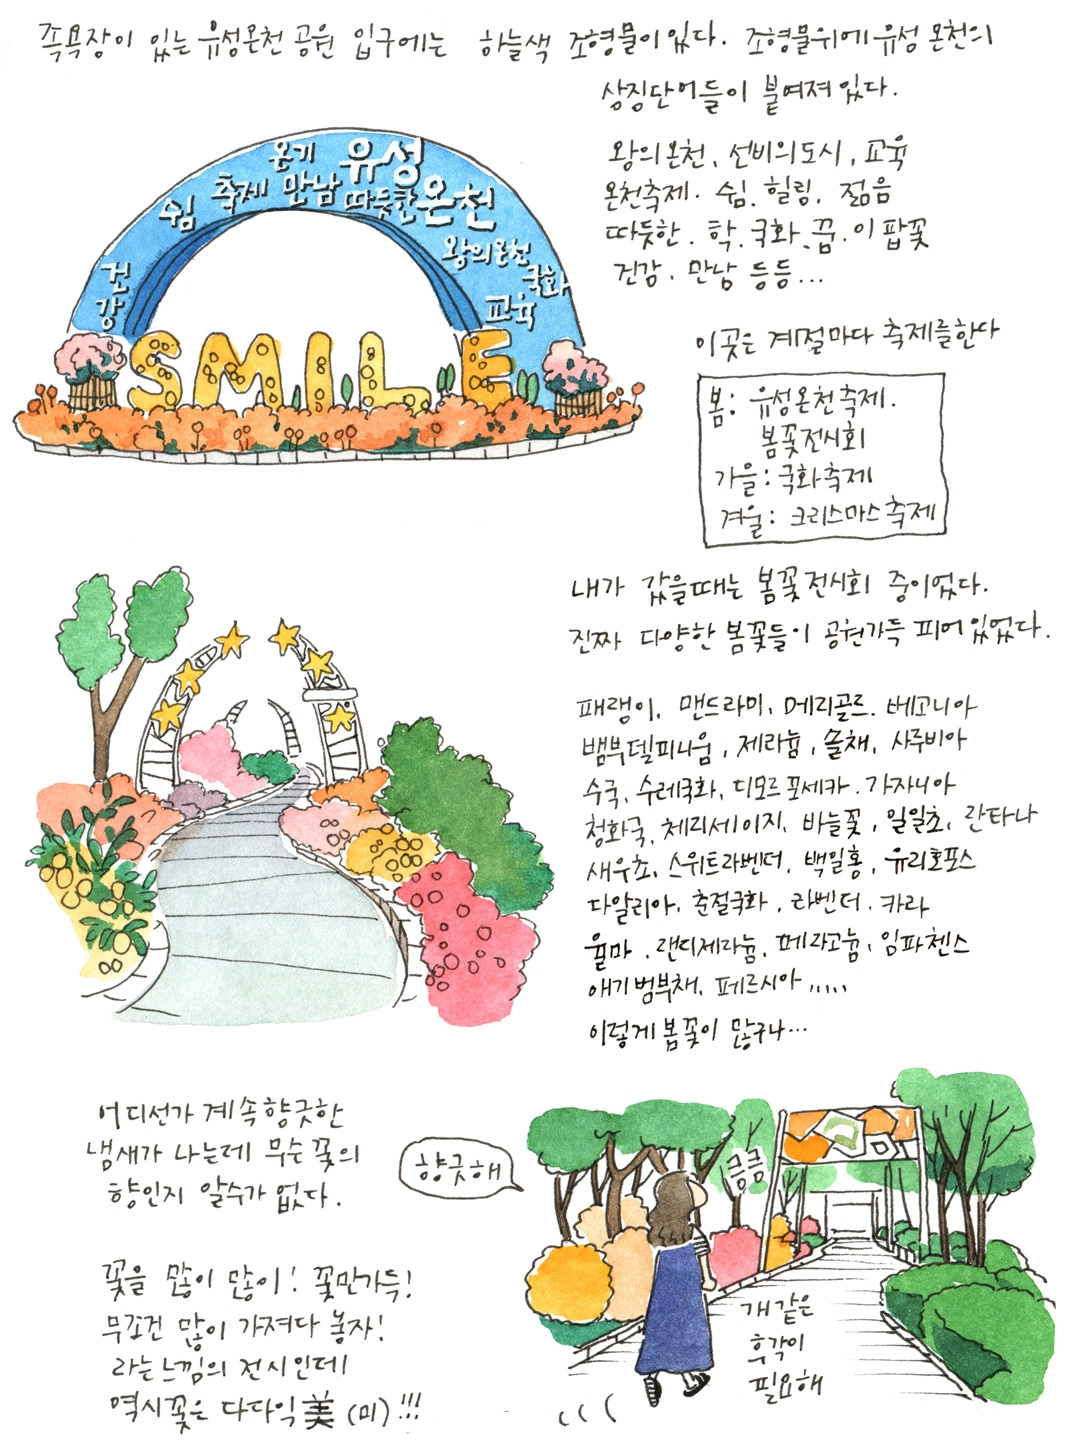 족욕장이 있는 유성온천 공원 입구에는 하늘색 조형물이 있다. 조형물위에 유성 온천의
상징단어들이 붙여져있다.
왕의온천, 선비의도시, 교육
온천축제. 쉼, 힐링, 젊음
따듯한. 학, 국화, 꿈. 이팝꽃
건강. 만남 등등...
건강
쉼
축제
온기
만남
유성
따듯한
온천
왕의온천
국화
교육
SMILE
이곳은 계절마다 축제를한다
봄: 유성온천축제.
봄꽃전시회
가을: 국화축제
겨울: 크리스마스축제
내가 갔을때는 봄꽃전시회 중이었다.
진짜 다양한 봄꽃들이 공원가득 피어있었다.
패랭이, 맨드라미, 메리골드. 베고니아
뱀부델피니움, 제라늄, 솔채, 사루비아
수국, 수레국화, 디모르포세카. 가자니아
청화국, 체리세이지, 바늘꽃, 일일초, 란타나
새우초, 스위트라벤더, 백일홍, 유리호프스
다알리아. 춘절국화. 라벤더. 카라
율마. 랜디제라늄, 페라고늄, 임파첸스
애기범부채, 페르시아.....
이렇게 봄꽃이 많구나...
어디선가 계속향긋한
냄새가 나는데 무슨꽃의
향인지 알수가 없다.
향긋해
킁킁
꽃을 많이 많이! 꽃만가득!
무조건 많이 가져다 놓자!
라는느낌의 전시인데
역시꽃은 다다익美(미)!!!
개 같은
후각이
필요해